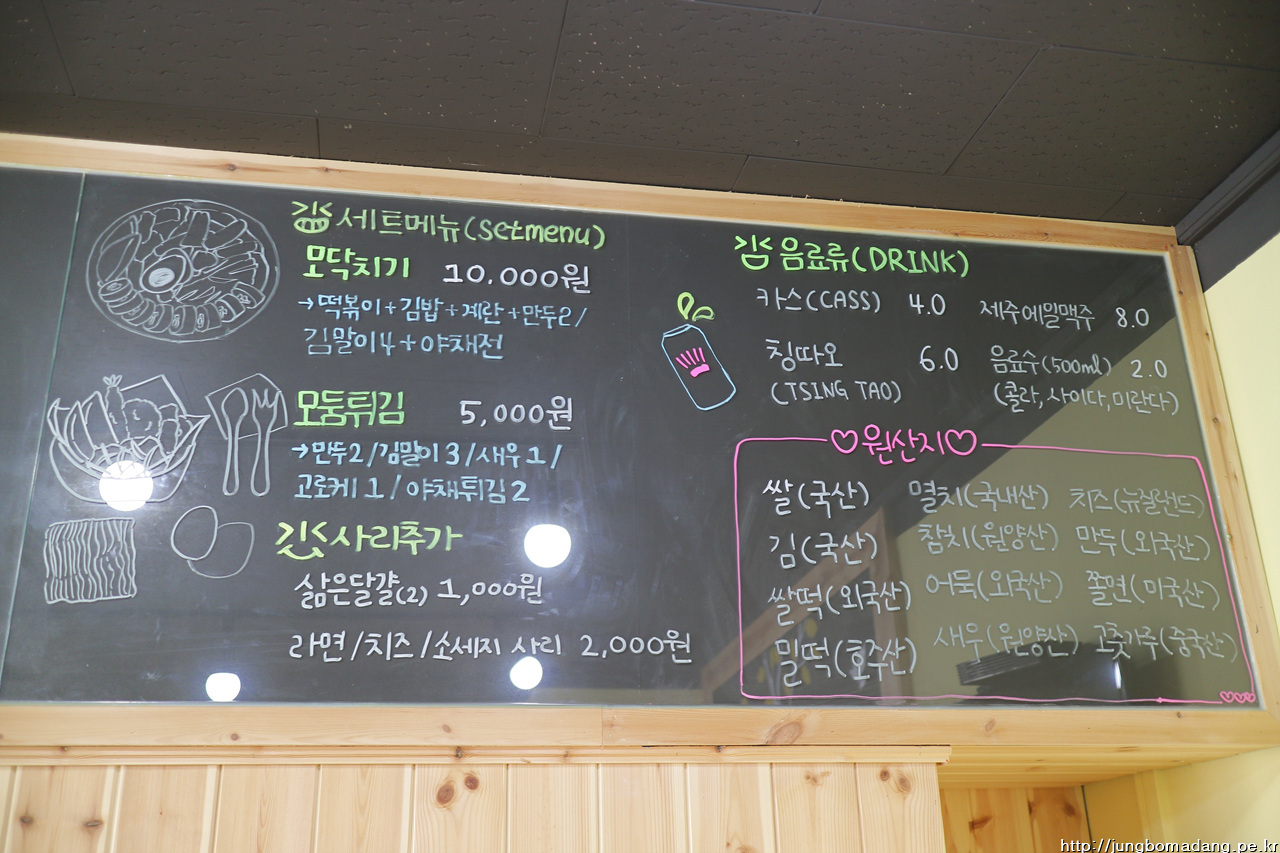 세트메뉴(setmenu)
모닥치기 10,000원
→떡볶이+김밥+계란+만두2/
김말이4+야채전
모둠튀김 5,000원
→만두2/김말이3/새우1/
고로케1/야채튀김2
사리추가
삶은달걀(2) 1,000원
라면/치즈/소세지 사리 2,000원
음료류(DRINK)
카스(CASS) 4.0 제주에일맥주 8.0
칭따오 6.0 음료수(500ml) 2.0
(TSING TAO) (콜라,사이다,미란다)
♡원산지♡
쌀(국산) 멸치(국내산) 치즈(뉴질랜드)
김(국산) 참치(원양산) 만두(외국산)
쌀떡(외국산) 어묵(외국산) 쫄면(미국산)
밀떡(호주산) 새우(원양산) 고춧가루(중국산)
http://jungbomadang.pe.kr